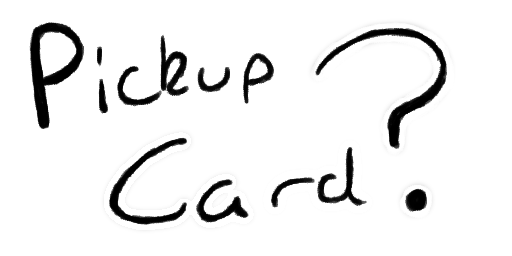 Pickup
Card?